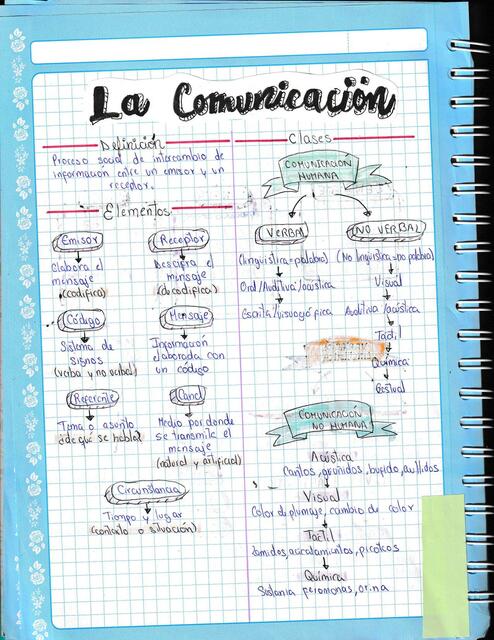 La Comunicación
Definición
Proceso social de intercambio de
información entre un emisor y un
receptor.
Elementos
Emisor
Elabora el
mensaje
(codifica)
Receptor
Descifra el
mensaje
(decodifica)
Código
Sistema de
signos
(verbal y no verbal)
Mensaje
Información
elaborada con
un código
Referente
Tema o asunto
¿de qué se habla?
Canal
Medio por donde
se transmite el
mensaje
(natural y artificial)
Circunstancia
Tiempo y lugar
(contexto o situación)
Clases
COMUNICACIÓN
HUMANA
VERBAL
(lingüística=palabra)
Oral/Auditiva/acústica
Escrita/visográfica
NO VERBAL
(No lingüística=no palabra)
Visual
Auditiva/acústica
Táctil
Química
Gestual
COMUNICACIÓN
NO HUMANA
Acústica
Cantos, gruñidos, bufido, aullidos
Visual
Color de plumaje, cambio de color
Táctil
picoteos
Química
feromonas, orina